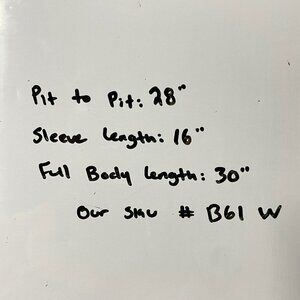 Pit to Pit: 28"
Sleeve Length: 16"
Full Body Length: 30"
Our SKU # B61 W